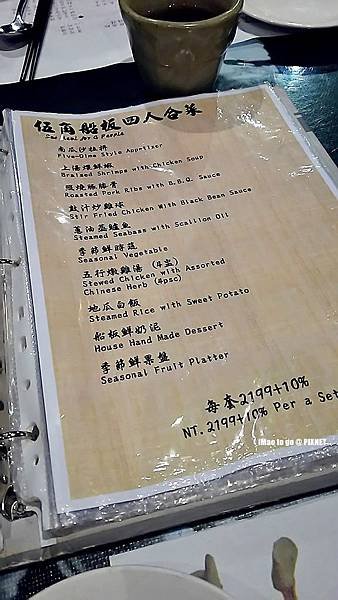 伍角船板四人合菜
Set Meal for 4 People
南瓜沙拉拼
Five-Dime Style Appetizer
上湯煨鮮蝦
Braised Shrimps with Chicken Soup
照燒豚肋骨
Roasted Pork Ribs with B.B.Q. Sauce
豉汁炒雞球
Stir Fried Chicken With Black Bean Sauce
蔥油蒸鱸魚
Steamed Seabass with Scallion Oil
季節鮮時蔬
Seasonal Vegetable
五行燉雞湯 (4盅)
Stewed Chicken with Assorted
Chinese Herb (4psc)
地瓜白飯
Steamed Rice with Sweet Potato
船板鮮奶泥
House Hand Made Dessert
季節鮮果盤
Seasonal Fruit Platter
每套2199+10%
NT. 2199+10% Per a Set
iMao to go @ PIXNET